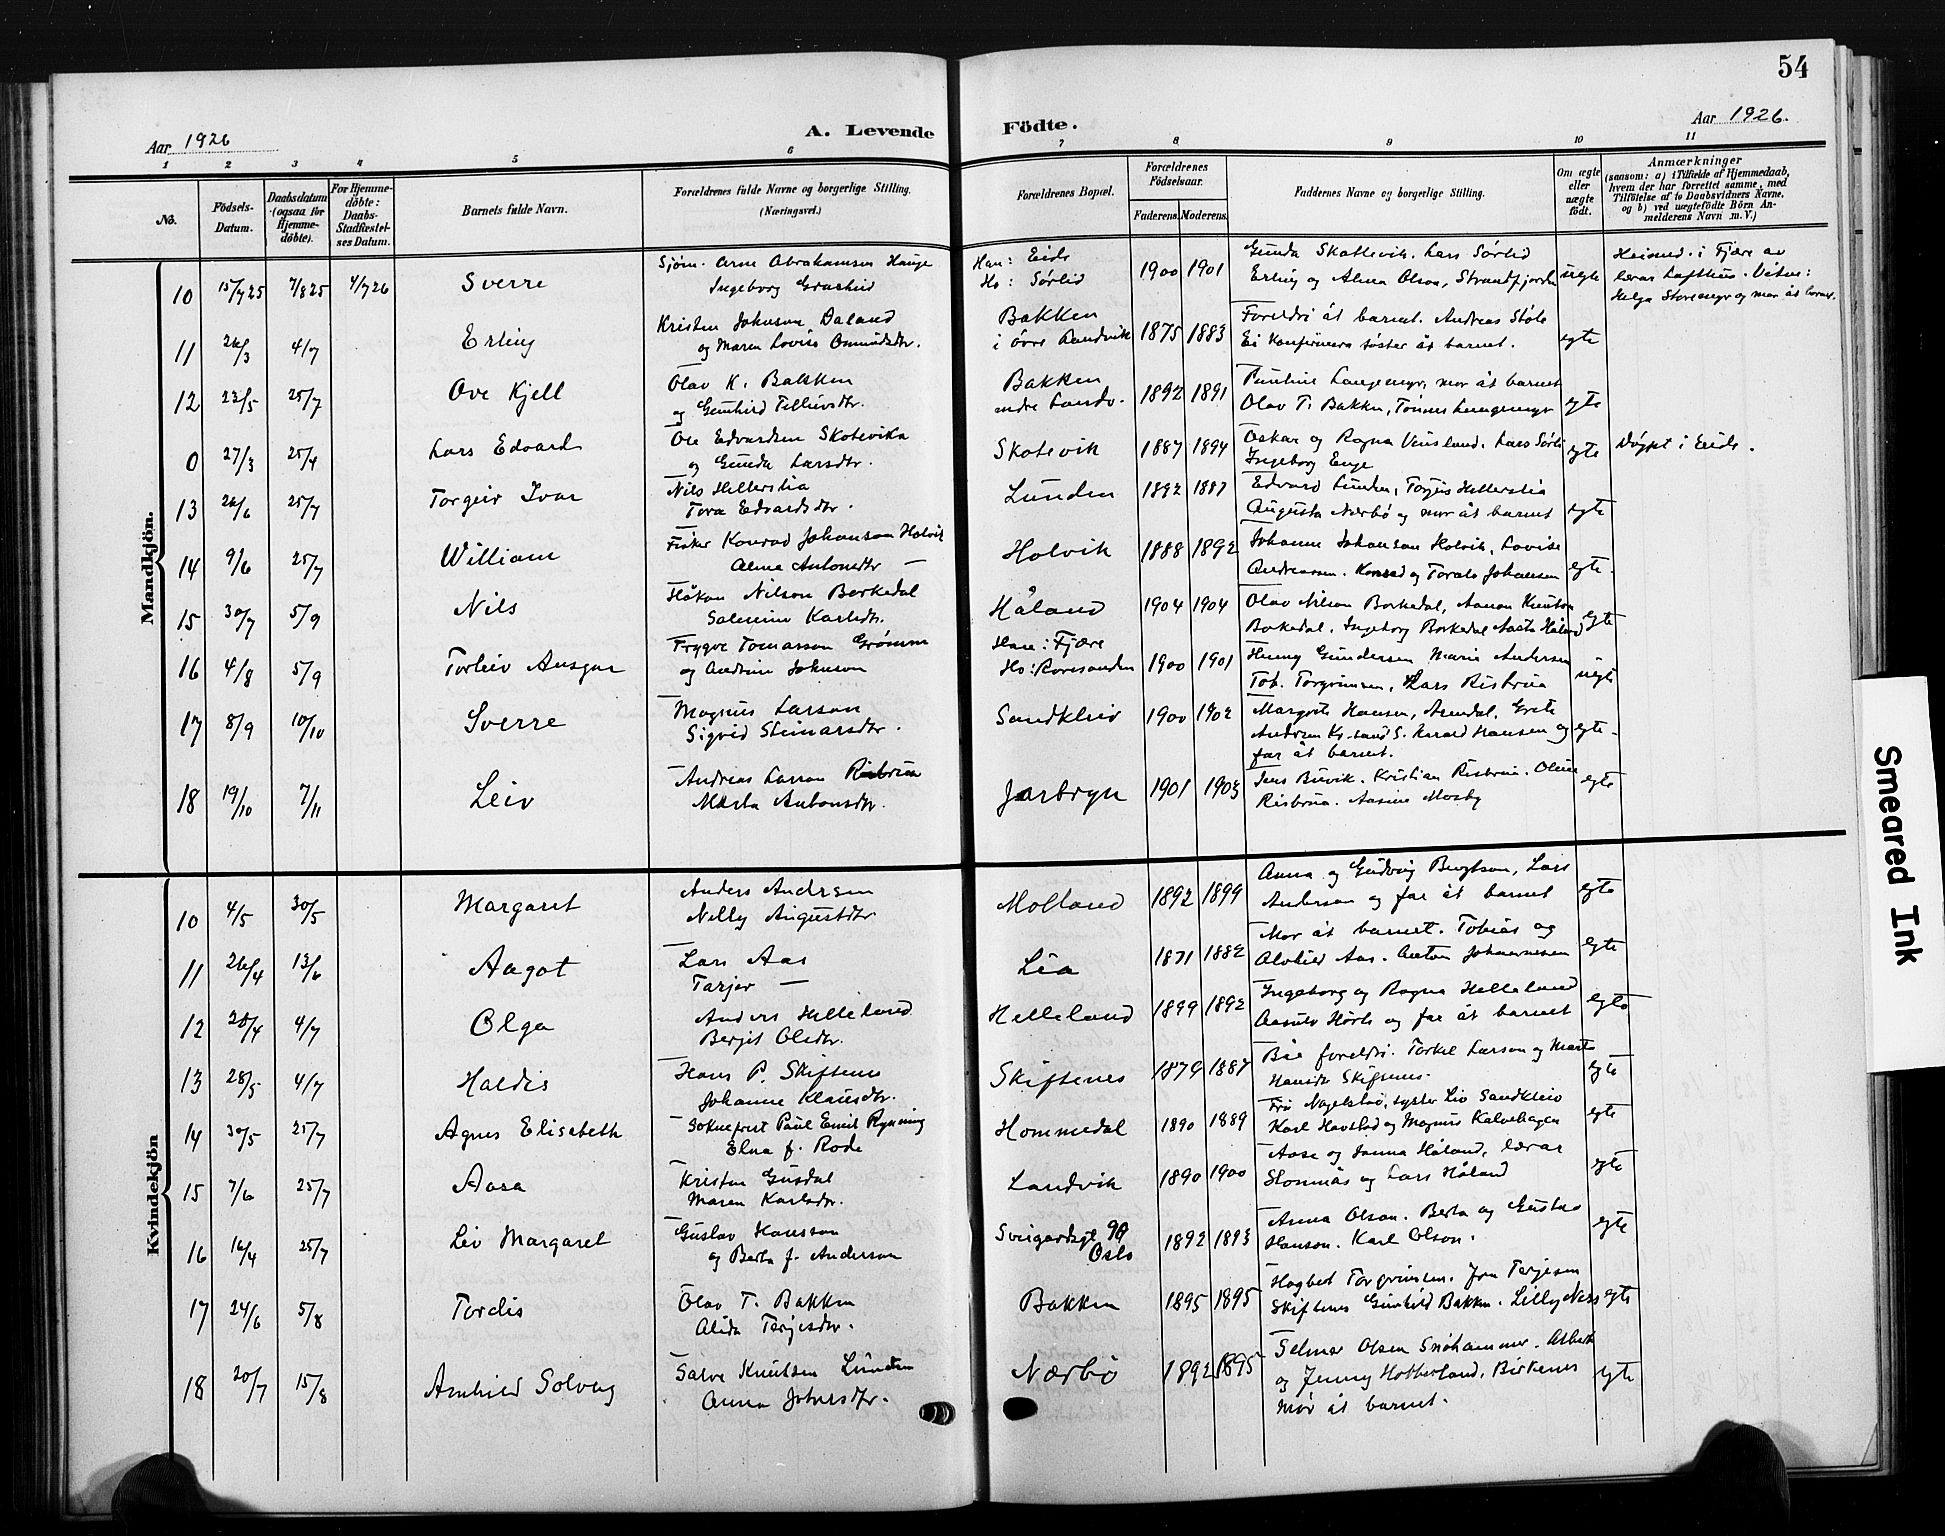 54
Aar 1926
A. Levende Födte.
Aar 1926.
1 2 3 4 5 6 7 8 9 10 11
No.
Födsels-Datum.
Daabsdatum (ogsaa for Hjemmedöbte).
For Hjemmedöbte: Daabs-Stadfæstelses Datum.
Barnets fulde Navn.
Forældrenes fulde Navne og borgerlige Stilling. (Næringsvei.)
Forældrenes Bopæl.
Forældrenes Födselsaar.
Faderens. Moderens.
Faddernes Navne og borgerlige Stilling.
Om ægte eller uægte födt.
Anmærkninger
(saasom: a) i Tilfælde af Hjemmedaab, hvem der har forrettet samme, med Tilföielse af to Daabsvidners Navne, og b) ved uægtefödte Börn Anmelderens Navn m. V.)
Mandkjön.
10 15/7 25 7/8 25 4/7 26 Sverre
Sjøm. Arne Abrahamsen Hauge
Ingeborg
Han: Eide
Ho: Sørlid
1900 1901
Gunda Skottevik. Lars Sørlid
Erling og Alma Olson, Strandfjorden
uegte
Heimd. i Fjære av
lærar Lofthus. Vitne:
Helga Storemyr og mor åt barnet.
11 26/3 4/7 Erling
Kristen Johnson Daland
og Maren Lovise Osmundsdtr.
Bakken
i övre Landvik
1875 1883
Foreldri åt barnet. Andreas Støle
Ei Konfirmera søster åt barnet.
egte
12 23/5 25/7 Ove Kjell
Olav K. Bakken
og Gunhild Tellievsdtr.
Bakken
nedre Landv.
1892 1891
Pauline Langemyr, mor åt barnet
Olav T. Bakken, Tönnes Langemyr
egte
0 27/3 25/4 Lars Edvard
Ole Edvardsen Skotevika
og Gunda Larsdtr.
Skotevik
1887 1894
Oskar og Ragna Vensland. Lars Sörli
Ingeborg Enge
egte
Döypt i Eide.
13 26/6 25/7 Torgeir Ivar
Nils Hellerslia
Tora Edvardsdtr.
Lunden
1892 1887
Edvard Lunden, Torjus Hellerslia
Augusta Nærbö og mor åt barnet
egte
14 9/6 25/7 William
Fisker Konrad Johanson Holvik
Alma Antonsdtr —
Holvik
1888 1892
Johanne Johanson Holvik, Lovise
Andreassen. Konrad og Torals Johansen
egte.
15 30/7 5/9 Nils
Håkon Nilson Borkedal
Salmine Karlsdtr.
Håland
1904 1904
Olav Nilson Borkedal, Aanon Knutson
Borkedal. Ingeborg Borkedal Aasta Håland
egte
16 4/8 5/9 Torleiv Ansgar
Trygve Tomasson Grömm
og Andrine Johnson
Han: Fjære
Ho: Roresanden
1900 1901
Henny Gundersen Marie Andersen
Tob. Torgrimsen, Lars Risbrua
uegte
17 8/9 10/10 Sverre
Magnus Larson
Sigrid Steinarsdtr.
Sandkleiv
1900 1902
Margrete Hansen, Arendal, Grete
Andersen Kr.sand S. Harald Hansen og
far åt barnet.
egte
18 19/10 7/11 Leiv
Andreas Larson Risbrua
Marta Antonsdtr.
Jorbryn
1901 1903
Jens Buvik. Kristian Risbrua. Oline
Risbrua. Aasine Mosby
egte
Kvindekjön
10 4/5 30/5 Margaret
Anders Andersen
Nelly Augustdtr
Molland
1892 1899
Anna og Gudvig Bugtson, Lars
Anderson og far åt barnet
egte
11 26/4 13/6 Aagot
Lars Aas
Tarjer —
Lia
1871 1882
Mor åt barnet. Tobias og
Alvhild Aas. Anton Johannesen
egte
12 20/4 4/7 Olga
Anders Helleland
Berjit Olsdtr.
Helleland
1899 1892
Ingeborg og Ragna Helleland
og far åt barnet
egte
13 28/5 4/7 Haldis
Hans P. Skiftenes
Johanne Klausdtr.
Skiftenes
1879 1887
Båe foreldri. Torkel Larson og Marta
Skiftenes.
egte
14 30/5 25/7 Agnes Elisabeth
Soknepr. Paul Emil Rynning
Elna f. Rode
Hommedal
1890 1889
Fru syster Liv Sandkleiv
Karl Havstad og Magnus Kalvehagen
egte
15 7/6 25/7 Aasa
Kristen Gusdal
Maren Karlsdtr.
Landvik
1890 1900
Aase og Janna Håland, lærar
Slommås og Lars Håland
egte
16 16/4 25/7 Liv Margaret
Gustav Hansson
og Berta f. Anderson
Sveigardsgt 99
Oslo
1892 1893
Anna Olson. Berta og Gustav
Hanson. Karl Olson.
egte
17 24/6 5/8 Tordis
Olav T. Bakken
Alida Terjesdtr.
Bakken
1895 1895
Hagbert Torgrimsen. Jon Terjesen
Skiftenes Gunhild Bakken. Lilly Ness
egte
18 20/7 15/8 Arnhild Solveig
Salve Knutsen Lunden
Anna Johnsdtr.
Nærbö
1892 1895
Selmer Olsen Snöhammer. Albert
og Jenny Hobberland, Birkenes
Mor åt barnet.
egte
Smeared Ink